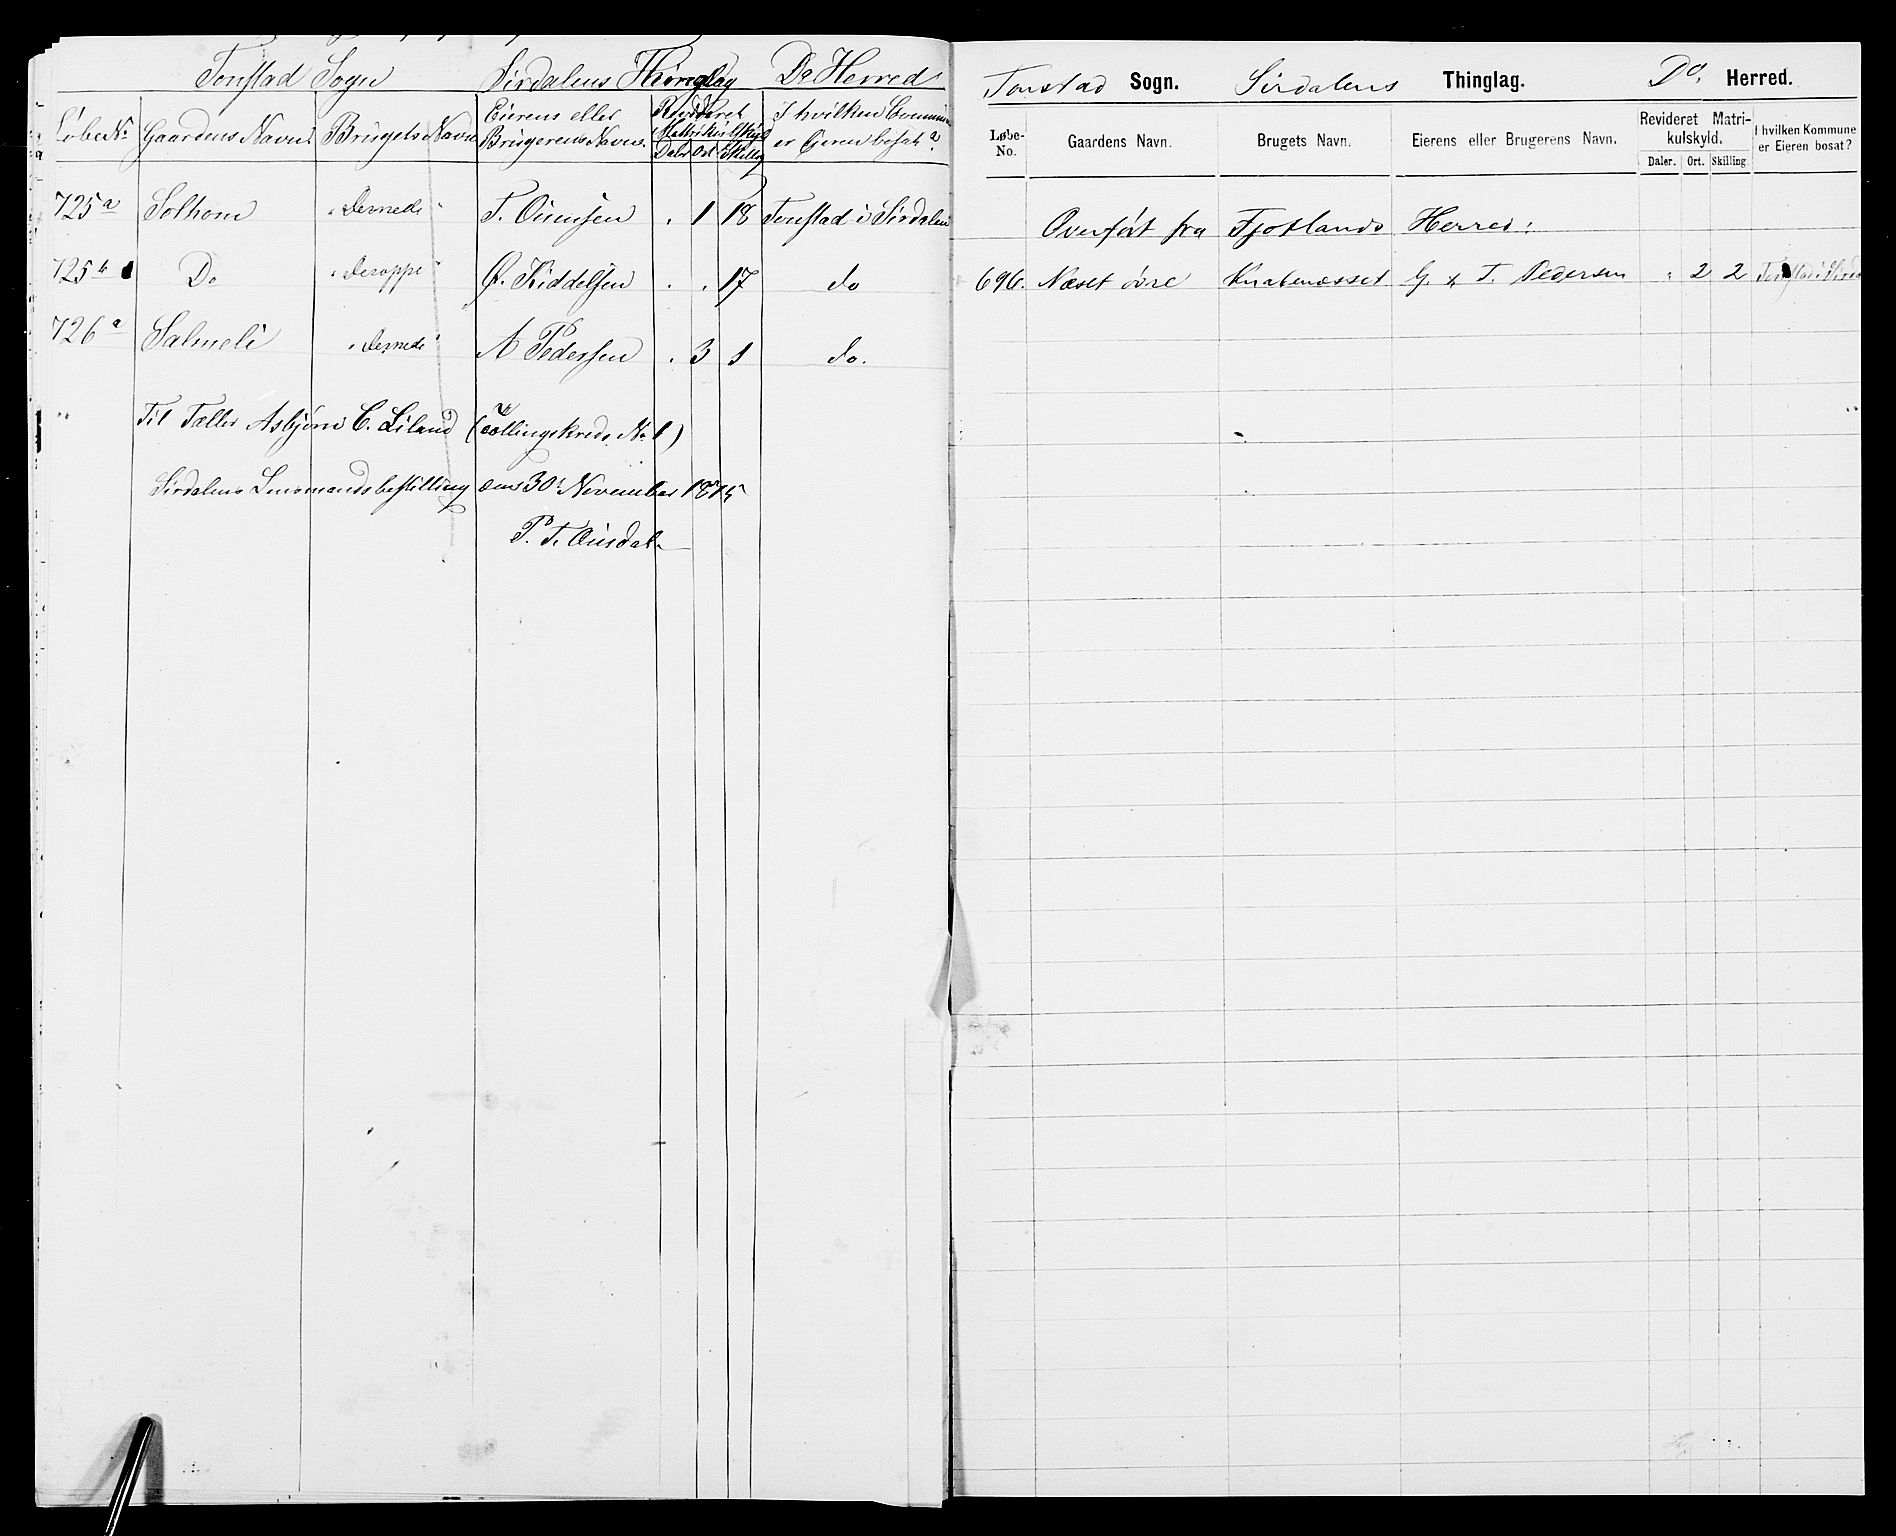 Tonstad Sogn Sirdalens Thinglag Do Herred
Løbe No Gaardens Navn Brugets Navn Eierens eller Brugerens Navn. Revideret Matrikulskyld Daler Ort Skilling I hvilken Commune er Eieren bosat?
725a Solhom "dernede" T. Ounsen . 1 18 Tonstad i Sirdalen
725b Do "deroppe" Ø. Kiddelsen . . 17 do
726a Salmeli "dernede" A Pedersen . 3 1 do.
Til Tæller Asbjørn C. Liland (Tællingskreds No 1)
Sirdalens Lensmandsbestilling den 30te November 1875
P. T. Ousdal.
Tonstad Sogn. Sirdalens Thinglag. Do. Herred.
Løbe-No. Gaardens Navn. Brugets Navn. Eierens eller Brugerens Navn. Revideret Matrikulskyld. Daler. Ort. Skilling. I hvilken Kommune er Eieren bosat?
Overført fra Fjotlands Herred:
696. Næset øvre Knabenæsset G. & T. Pedersen " 2 2 Tonstad i Sird